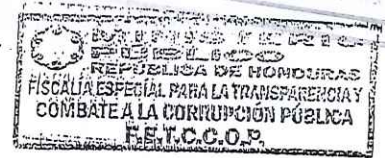 MINISTERIO
PUBLICO
REPUBLICA DE HONDURAS
FISCALIA ESPECIAL PARA LA TRANSPARENCIA Y
COMBATE A LA CORRUPCIÓN PÚBLICA
F.E.T.C.C.O.P.